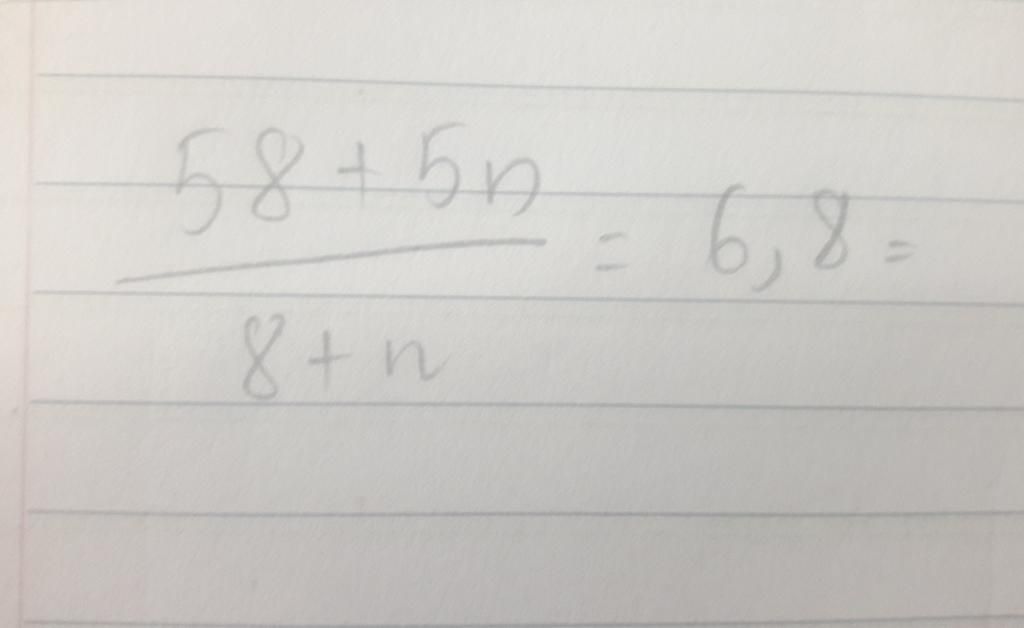 58 + 5n
= 6,8 =
8 + n